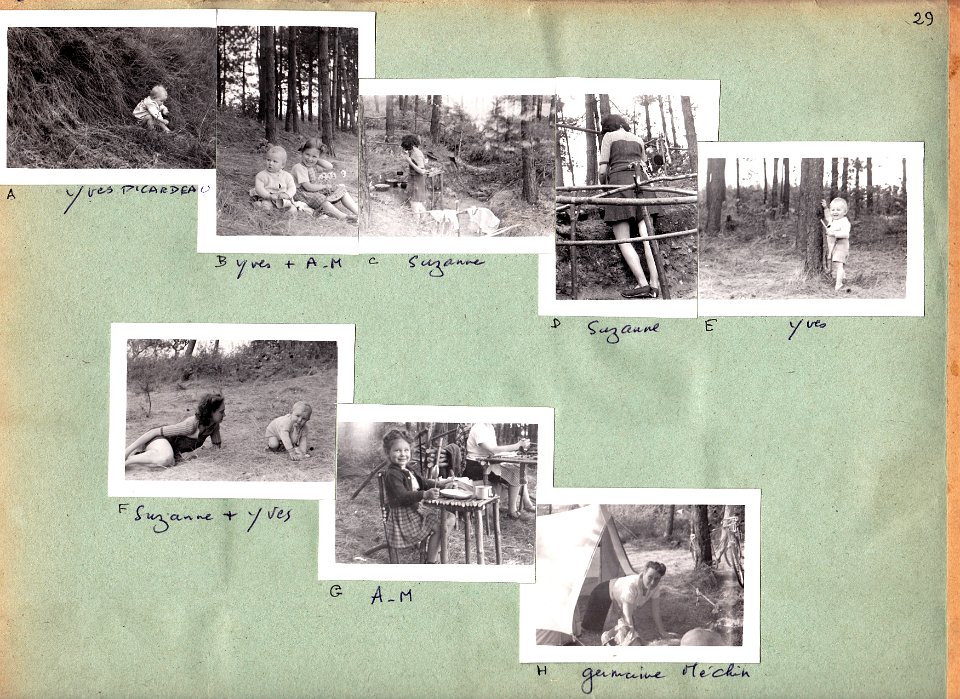 29
A Yves PICARDEAU
B Yves + A-M
C Suzanne
D Suzanne
E Yves
F Suzanne + Yves
G A-M
H germaine Méchin